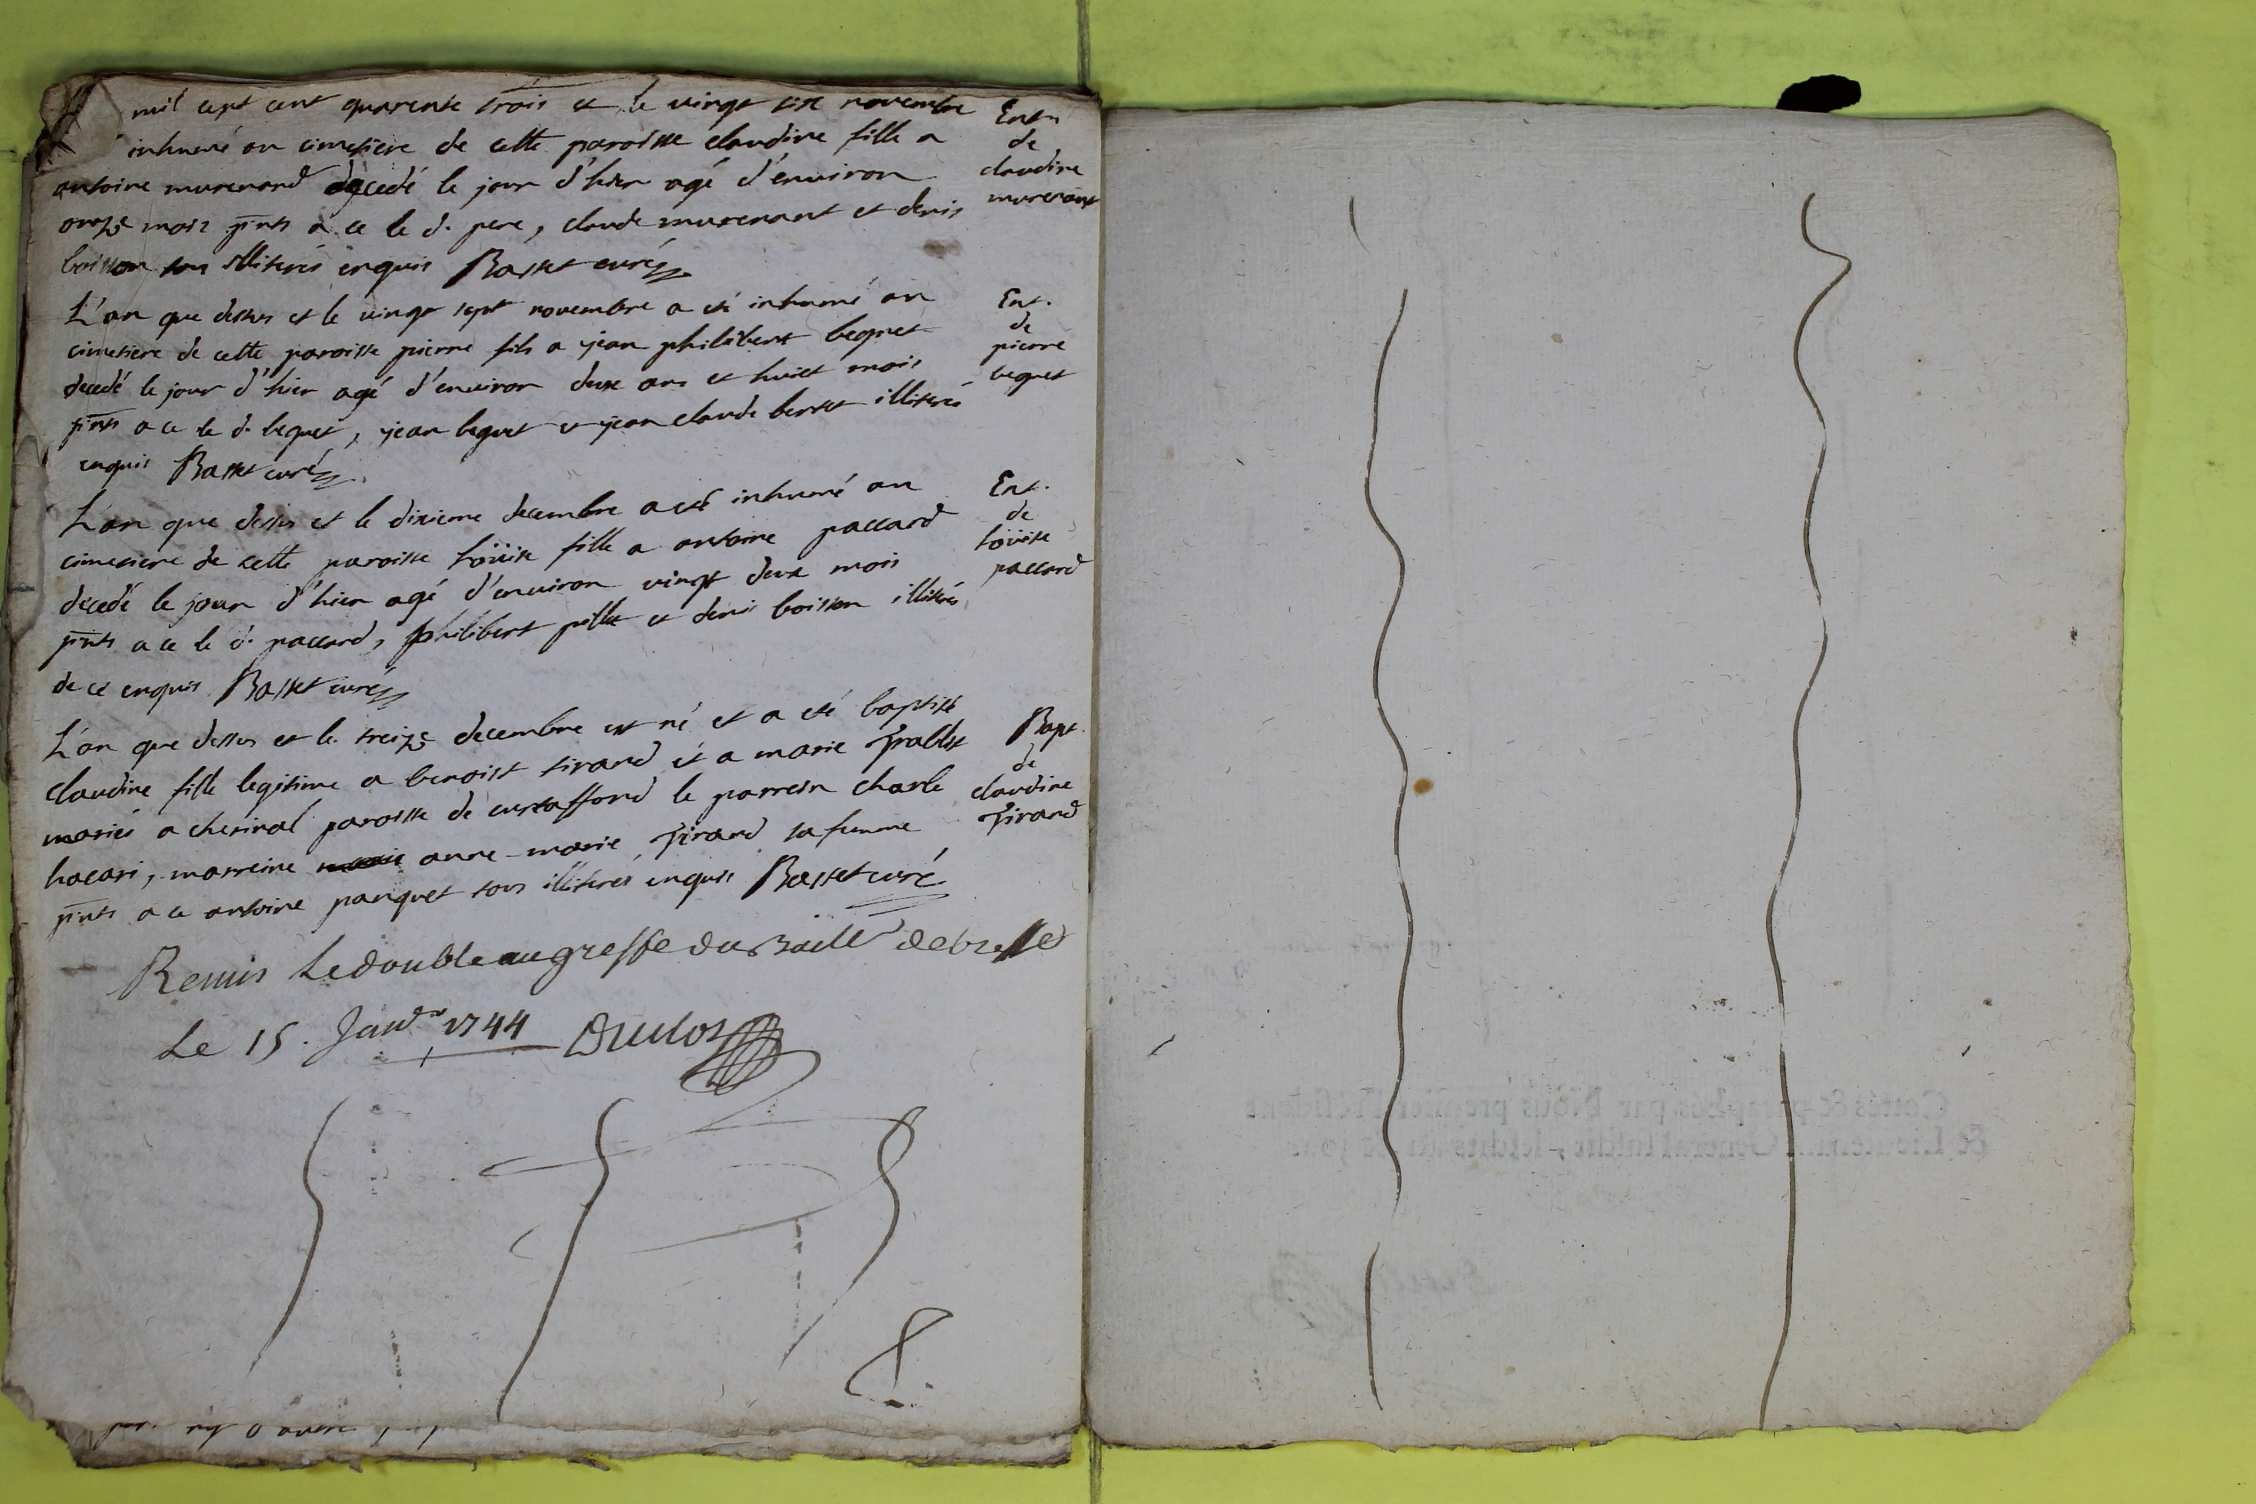 mil cept cent quarente trois et le vingt six novembre
inhumé au cimetiere de cette paroisse claudine fille a
antoine murenand decedé le jour d'hier agé d'environ
onze mois pnts a ce le d. pere, claude murenant et denis
boisson tous illiterés enquis Basset curé
Ent.
de
claudine
murenant
L'an que dessus et le vingt sept novembre a eté inhumé au
cimetiere de cette paroisse pierre fils a jean philibert bequet
decedé le jour d'hier agé d'environ deux ans et huict mois
pnts a ce le d. bequet, jean bequet et jean claude illiterés
enquis Basset curé
Ent.
de
pierre
bequet
L'an que dessus et le dixieme decembre a eté inhumé au
cimetiere de cette paroisse loüise fille a antoine paccard
decedé le jour d'hier agé d'environ vingt deux mois
pnts a ce le d. paccard, philibert pillet et denis boisson illiterés
de ce enquis Basset curé
Ent.
de
loüise
paccard
L'an que dessus et le treize decembre est né et a eté baptisé
claudine fille legitime a benoist tirand et a marie
mariés a cheninal paroisse de curtaffond le parrein charle
hacari, marreine anne-marie Tirand sa femme
pnts a ce antoine panquet tous illiterés enquis Basset curé
Bapt.
de
claudine
Tirand
Remis Le double au greffe du Baill. de bresse
Le 15. Janv. 1744 Duclos
Cottés & paraphés par Nous premier President
& Lieutenant General susdit, lesdits an & jour